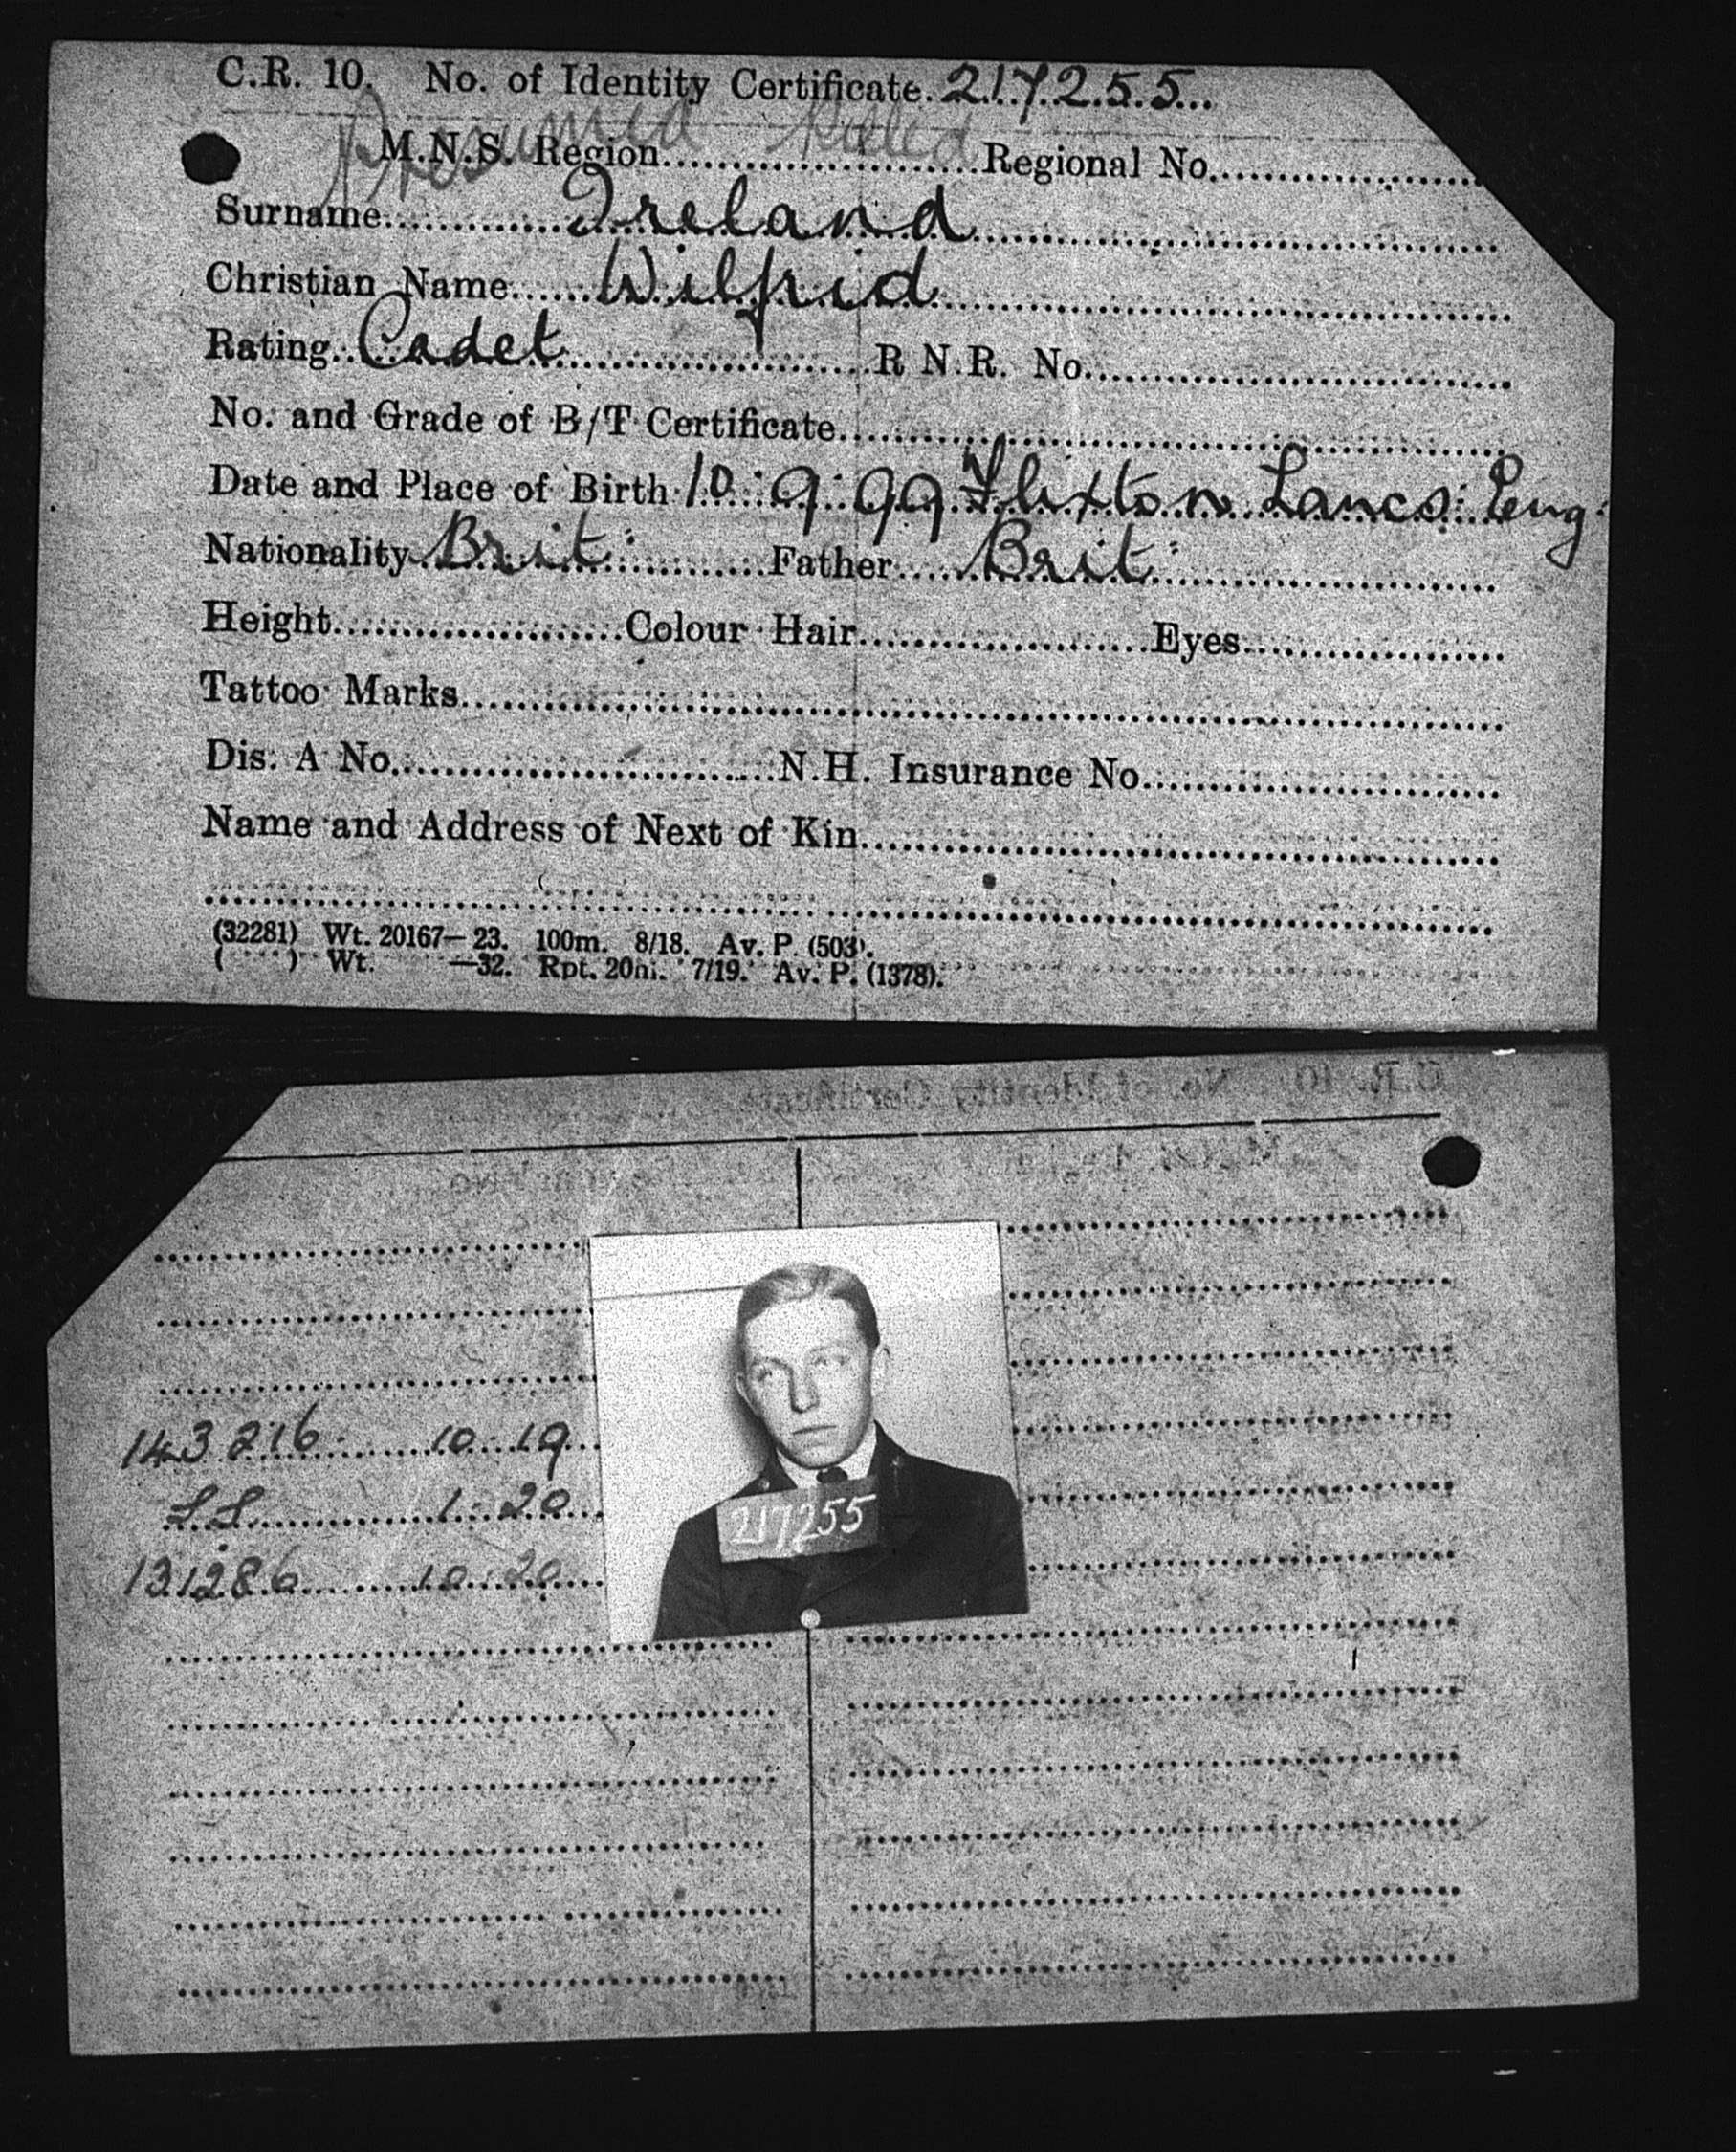 C.R. 10. No. of Identity Certificate. 217255
Presumed killed
M.N.S. Region Regional No.
Surname Ireland
Christian Name Wilfrid
Rating Cadet R N.R. No.
No. and Grade of B/T Certificate
Date and Place of Birth 10 : 9 : 99 Flixton Lancs: Eng:
Nationality Brit: Father Brit:
Height Colour Hair Eyes
Tattoo Marks
Dis. A No. N.H. Insurance No.
Name and Address of Next of Kin
(32281) Wt. 20167—23. 100m. 8/18. Av. P. (503).
( ) Wt. —32. Rpt. 20m. 7/19. Av. P. (1378).
143216 10.19
S.S. 1.20
131286 10.20
217255